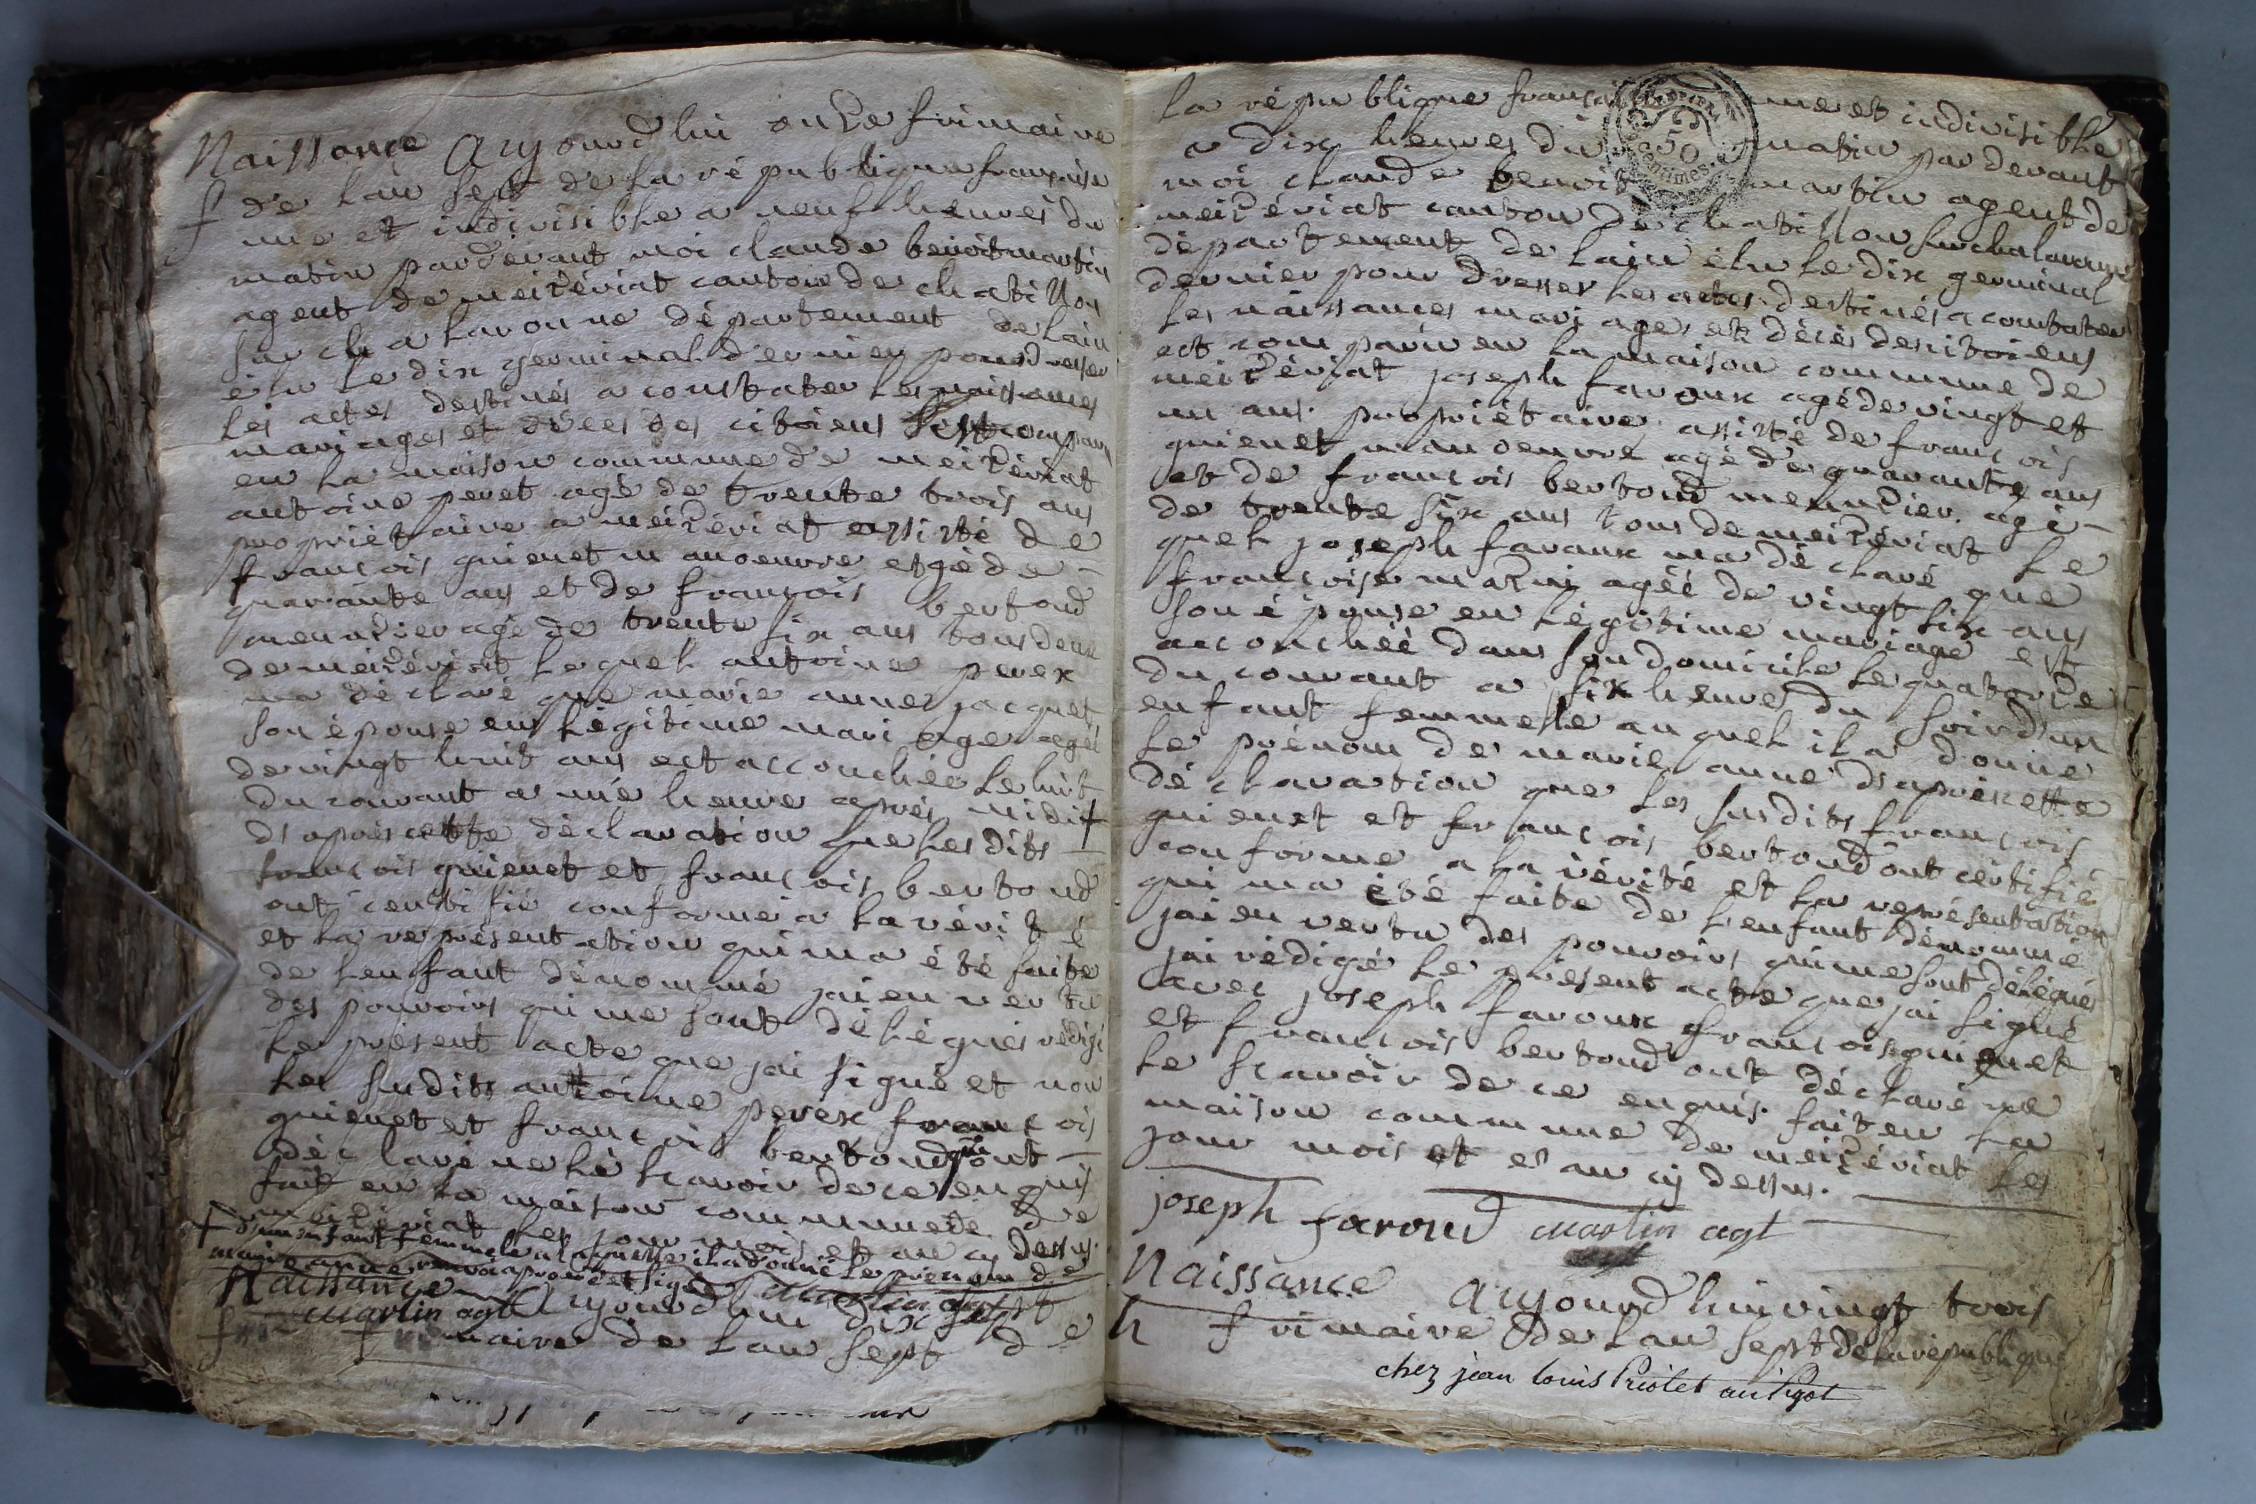 Naissance Aujourd'hui onze frimaire
f de lan sept de la république française
une et indivisible a neuf heures du
matin pardevant moi claude benoit martin
agent de meizériat canton de chatillon
sur chalaronne département de lain
élu le dix germinal dernier pour dresser
les actes destinés a constater les naissances
mariages et décès des citoiens est comparu
en la maison commune de meizériat
antoine peret agé de trente trois ans
propriétaire a meizériat assisté de
francois guienet manoeuvre agé de
quarante ans et de francois bertoud
meunier agé de trente six ans tous deux
de meizériat lequel antoine perex
ma déclaré que marie anne jacquet
son épouse en légitime mariage agée
de vingt huit ans est accouchée le huit
du courant a une heure après midi +
d'après cette déclaration que les dits
francois guienet et francois bertoud
ont certifié conforme a la vérité
et la représentation qui ma été faite
de lenfant dénommé jai en vertu
des pouvoirs qui me sont délégués rédigé
le présent acte que jai signé et non
les sudits antoine perex francois
guienet et francois bertoud qui ont
déclaré ne le scavoir de ce enquis
fait en la maison commune de
meizériat les jour mois et an cy dessus.
+ d'un enfant femmele a laquelle il a donné le prénom de
marie anne renvoi aprouvé et signé martin agt
Naissance Aujourd'hui dix sept
martin agt
frimaire de lan sept de
la république française une et indivisible
a dix heures du matin par devant
moi claude benoit martin agent de
meizériat canton de chatillon sur chalaronne
département de lain élu le dix germinal
dernier pour dresser les actes destinés a constater
les naissances mariages et décès des citoiens
est comparu en la maison commune de
meizériat joseph faroux agé de vingt et
un ans. propriétaire assisté de francois
guienet manoeuvre agé de quarante ans
et de francois bertoud meunier. agé
de trente six ans tous de meizériat le
quel joseph faroux ma déclaré que
francoise agée de vingt six ans
son épouse en légitime mariage est
accouchée dans son domicile le quatorze
du courant a six heures du soir d'un
enfant femmelle au quel il a donné
le prénom de marie anne d'après cette
déclaration que les susdits francois
guienet et francois bertoud ont certifié
conforme a la vérité et la représentation
qui ma été faite de lenfant dénommé
jai en vertu des pouvoirs qui me sont délégués
jai rédigé le présent acte que jai signé
avec joseph faroux francois guienet
et francois bertoud ont déclaré ne
le scavoir de ce enquis. fait en la
maison commune de meizériat les
jour mois et an cy dessus.
joseph faroud martin agt
Naissance Aujourd'hui vingt trois
h frimaire de lan sept de la république
chez jean louis Priolet au Pigot
50
centimes